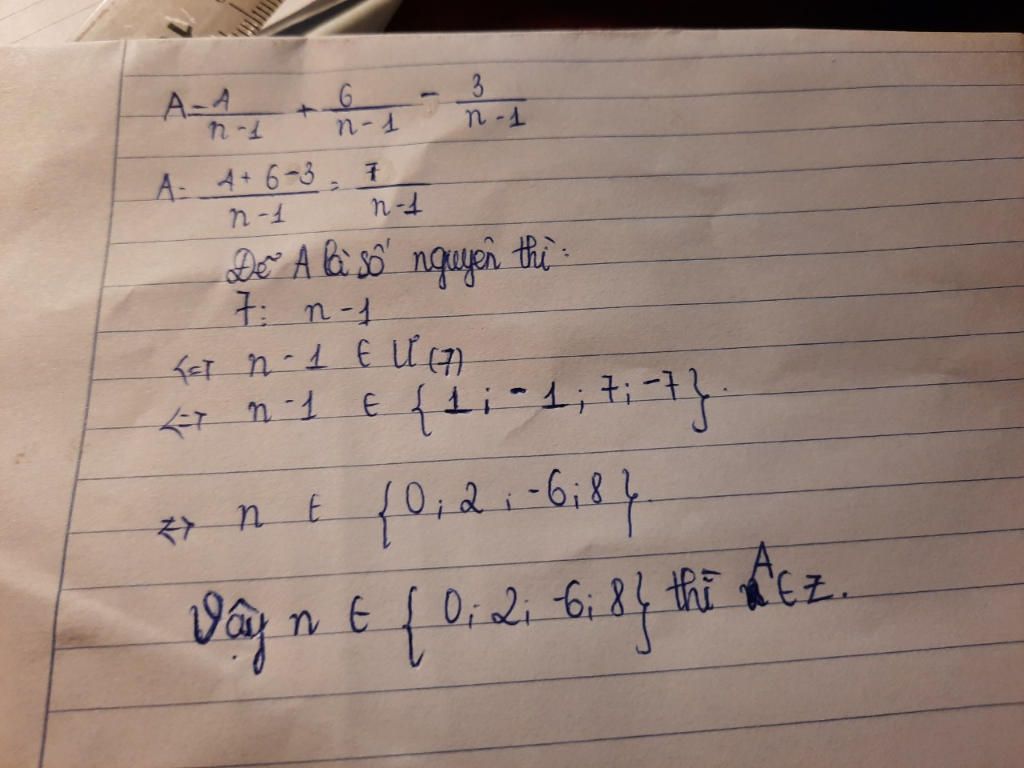 A = 4/(n-1) + 6/(n-1) - 3/(n-1)
A = (4+6-3)/(n-1) = 7/(n-1)
Để A là số nguyên thì:
7 ⋮ n-1
<=> n-1 ∈ Ư(7)
<=> n-1 ∈ {1; -1; 7; -7}.
=> n ∈ {0; 2; -6; 8}.
Vậy n ∈ {0; 2; -6; 8} thì A ∈ Z.